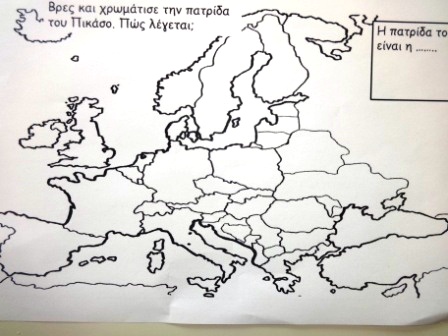 Βρες και χρωμάτισε την πατρίδα
του Πικάσο. Πώς λέγεται;
Η πατρίδα το
είναι η ........